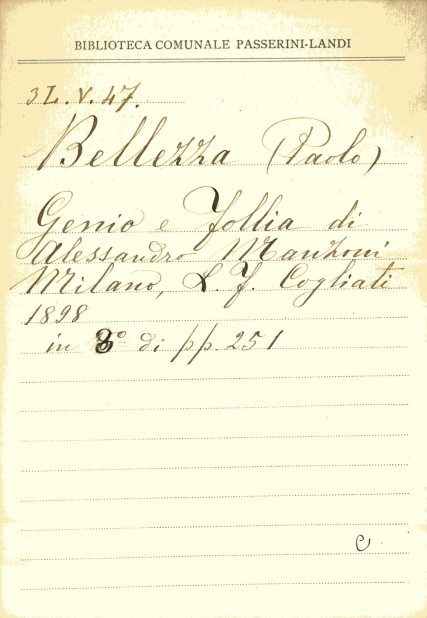 BIBLIOTECA COMUNALE PASSERINI-LANDI
3 L. V. 47.
Bellezza (Paolo)
Genio e follia di
Alessandro Manzoni
Milano, L. F. Cogliati
1898
in 8º di pp. 251
C